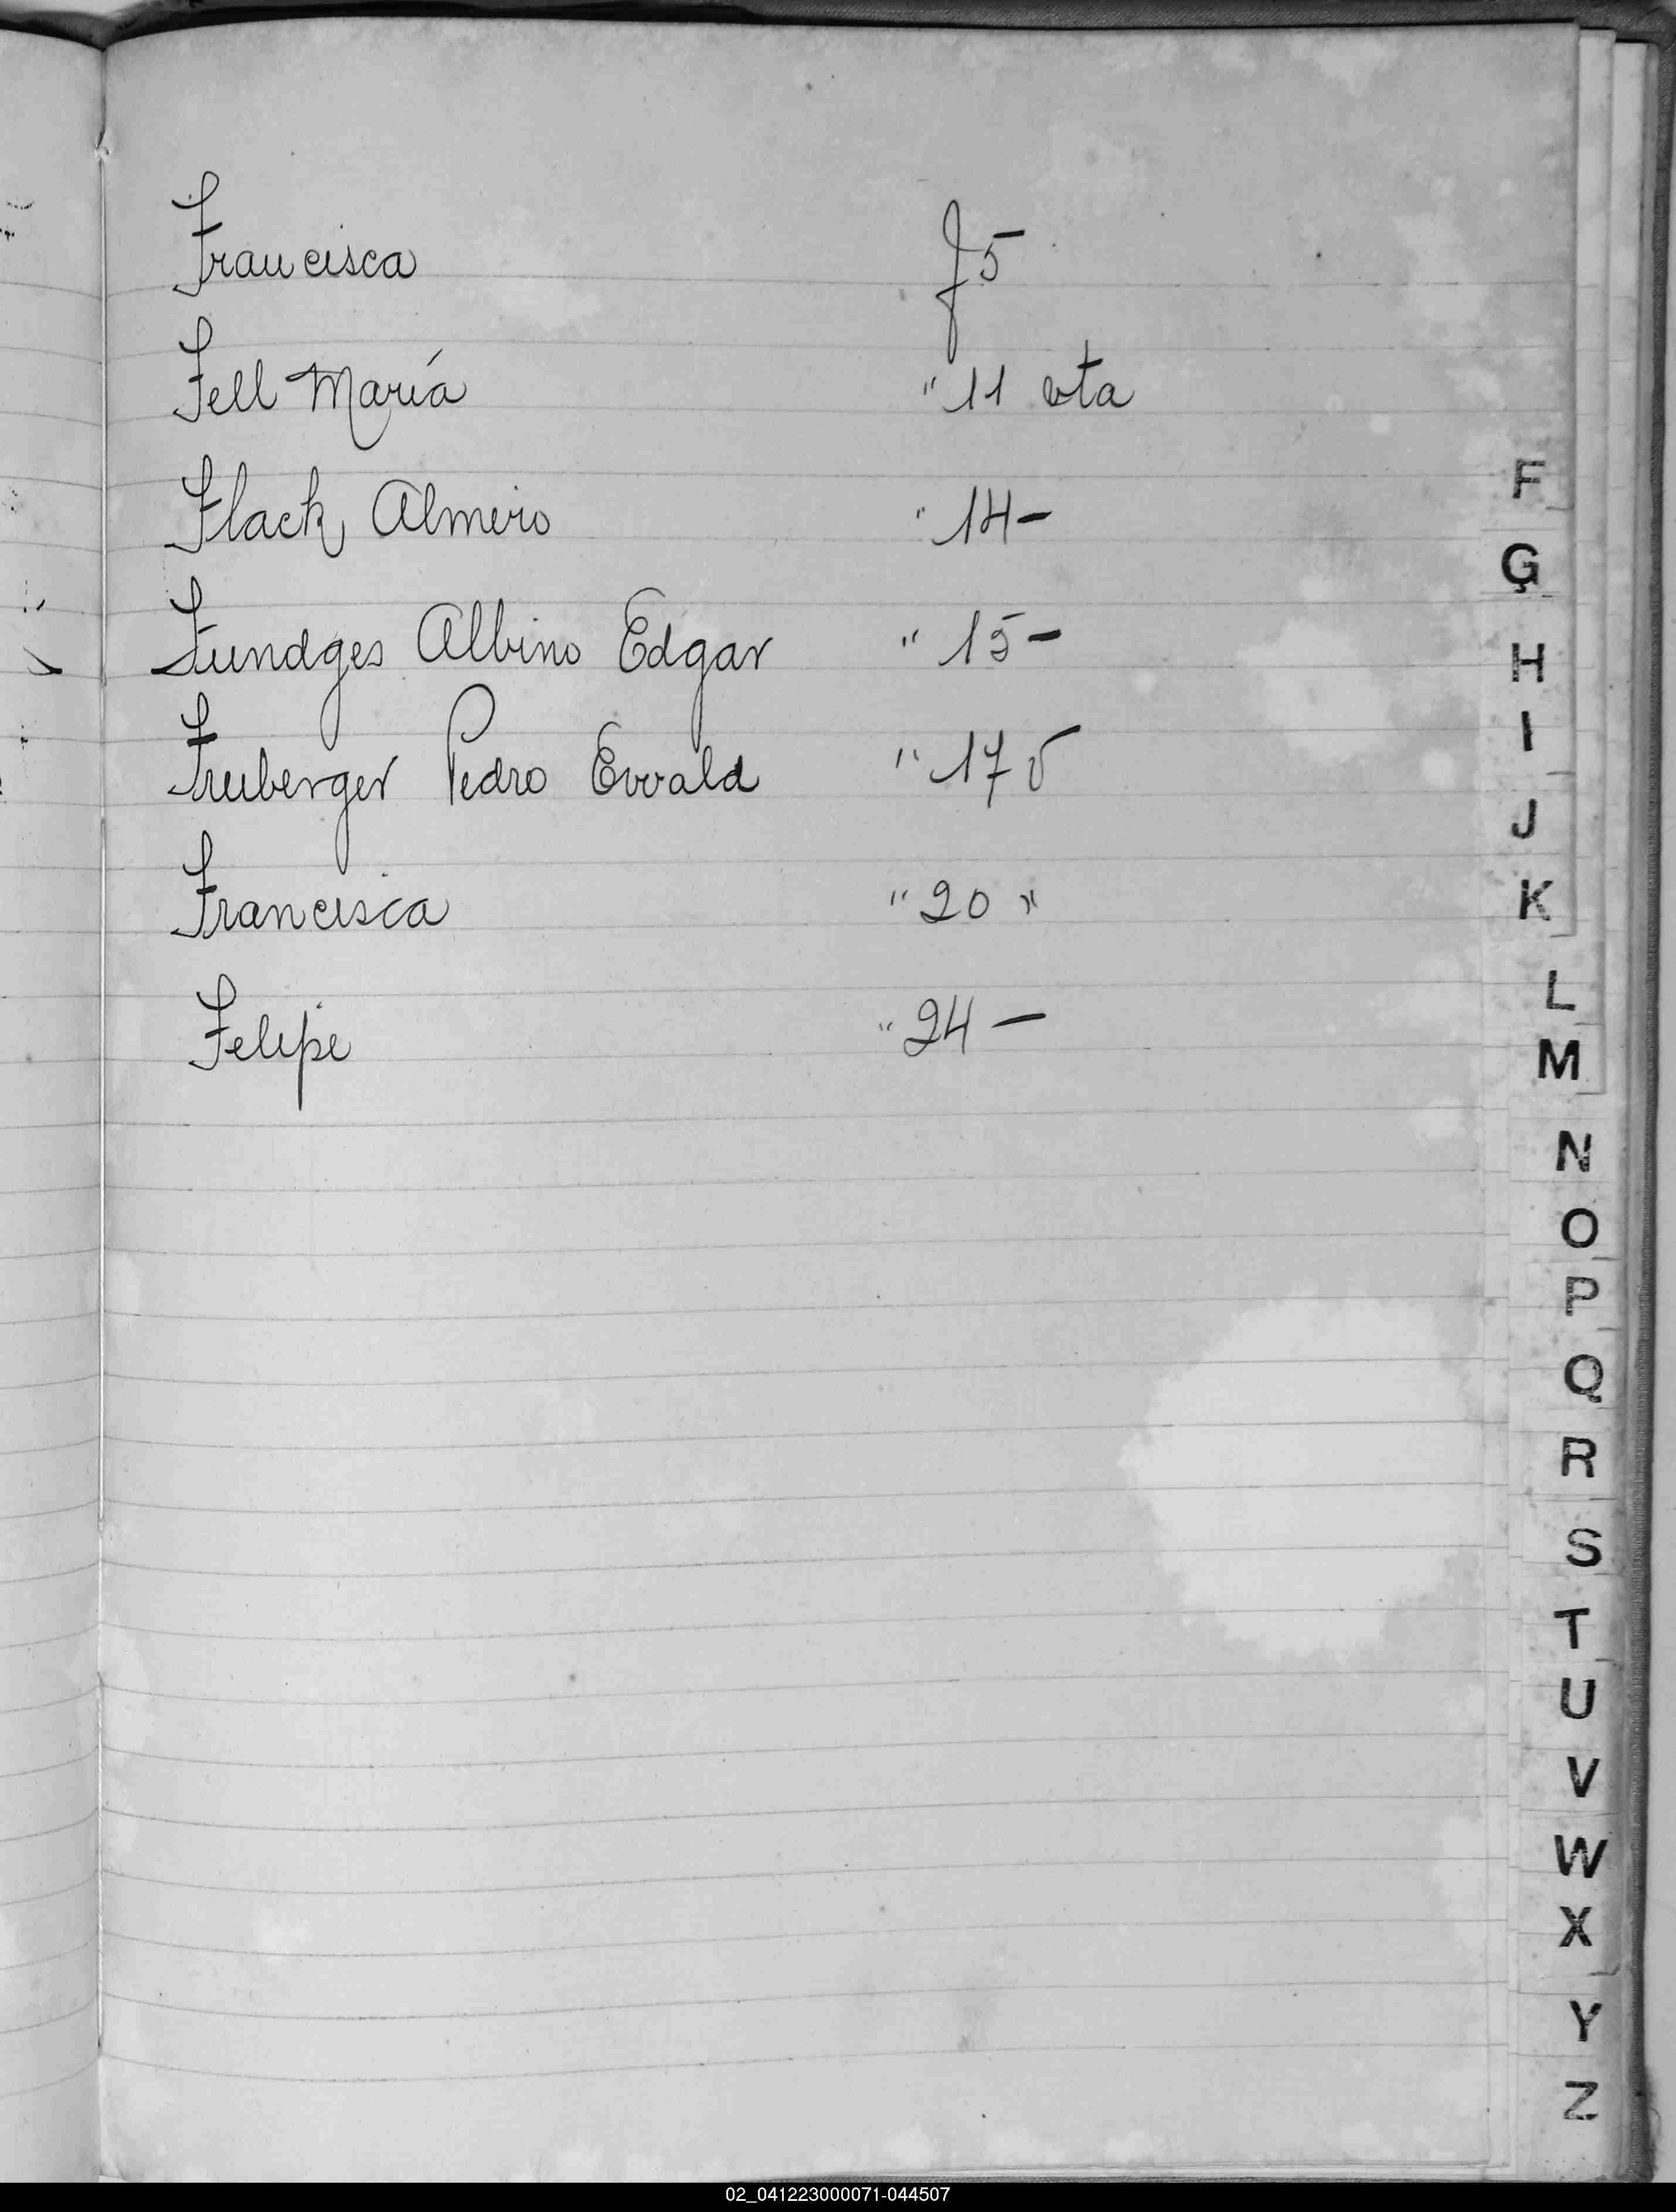 Francisca f 5
Fell María " 11 vta
Flack Almiro " 14 -
Fundges Albino Edgar " 15 -
Freiberger Pedro Evvald " 17 v
Francisca " 20 "
Felipe " 24 -
F
G
H
I
J
K
L
M
N
O
P
Q
R
S
T
U
V
W
X
Y
Z
02_041223000071-044507